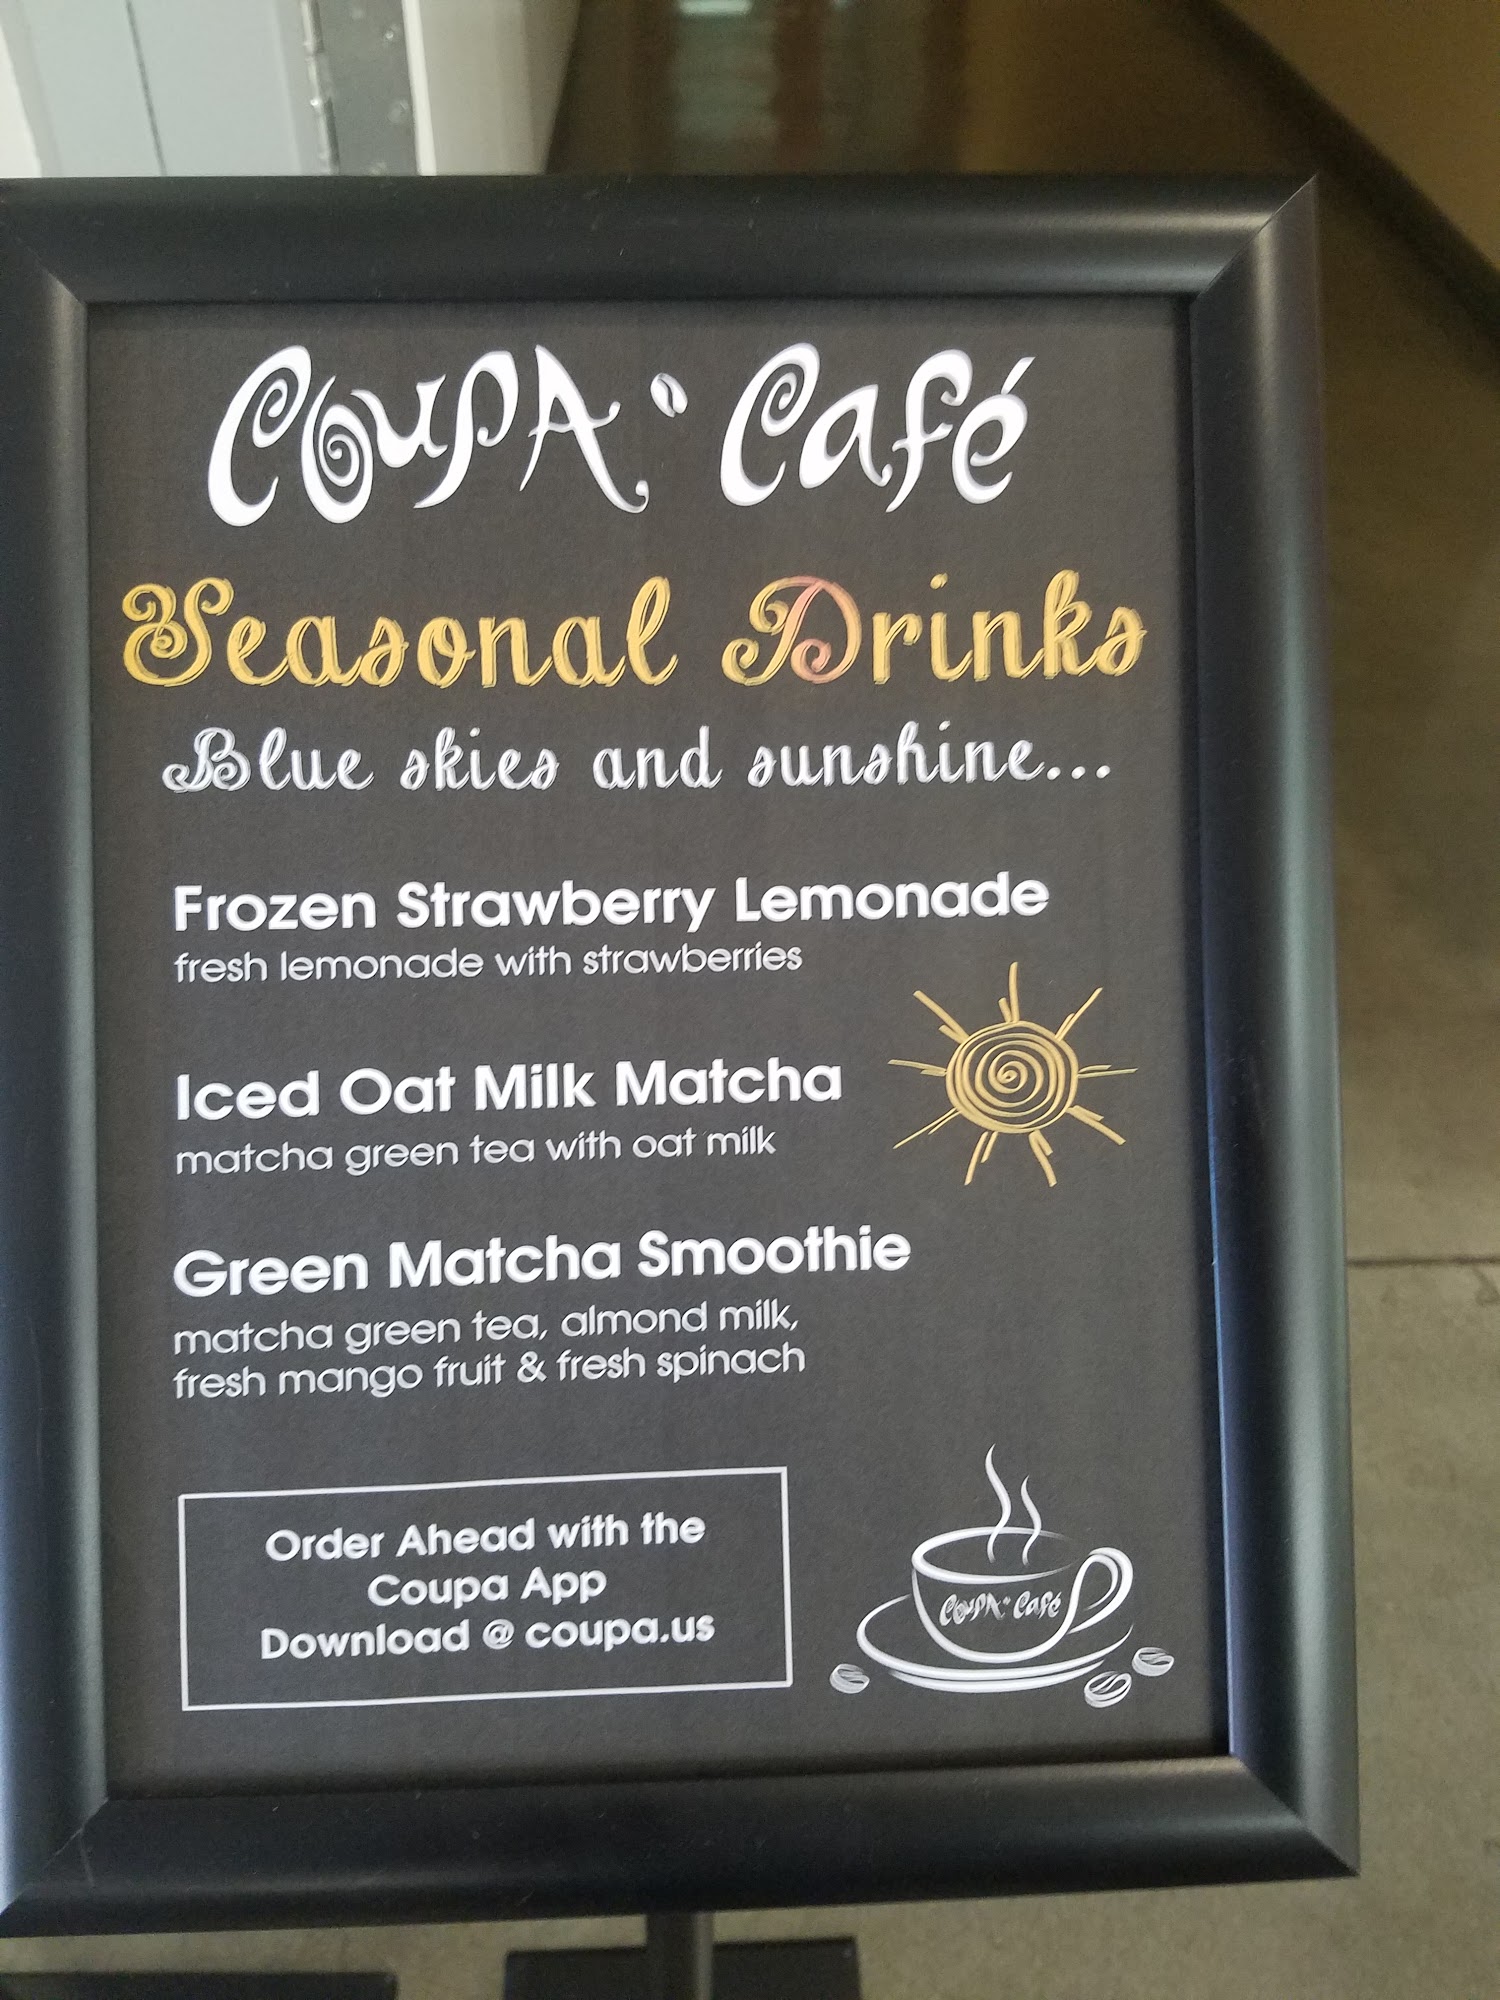 Coupa Café
Seasonal Drinks
Blue skies and sunshine...
Frozen Strawberry Lemonade
fresh lemonade with strawberries
Iced Oat Milk Matcha
matcha green tea with oat milk
Green Matcha Smoothie
matcha green tea, almond milk,
fresh mango fruit & fresh spinach
Order Ahead with the
Coupa App
Download @ coupa.us
Coupa Café